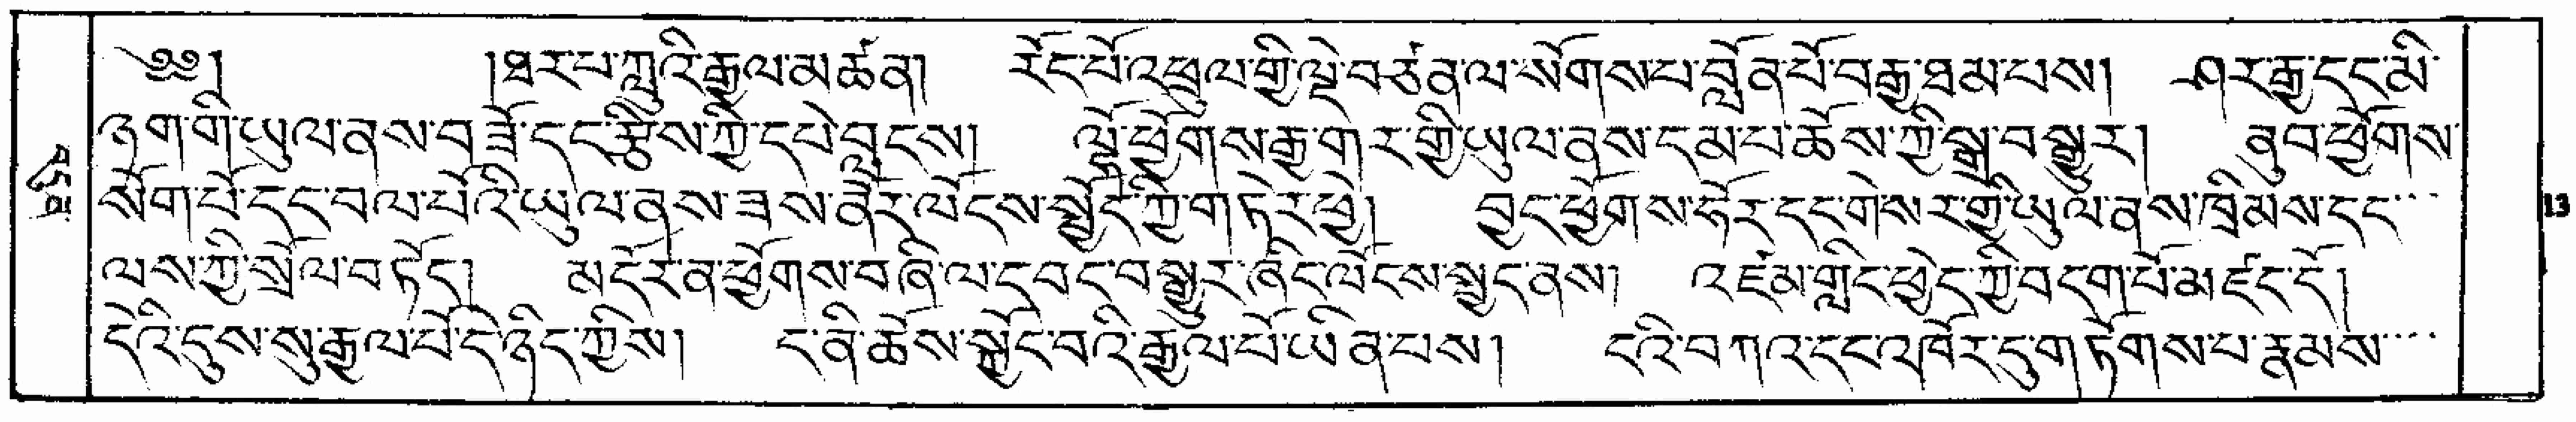 ༄༅། །ཐར་པ་ཀླུའི་རྒྱལ་མཚན། རོང་པོ་འཕྲུལ་གྱི་ལྡེ་བཙན་ལ་སོགས་པ་བློན་པོ་བརྒྱ་ཐམ་པས། ཤར་རྒྱ་དང་མི་
ཉག་གི་ཡུལ་ནས་བཟོ་དང་རྩིས་ཀྱི་དཔེ་བླངས། ལྷོ་ཕྱོགས་རྒྱ་གེར་གྱི་ཡུལ་ནས་དམ་པ་ཆོས་ཀྱི་སྒྲ་བསྒྱུར། ནུབ་ཕྱོགས་
སོག་པོ་དང་བལ་པོའི་ཡུལ་ནས་ཟས་ནོར་ལོངས་སྤྱོད་ཀྱི་གཏེར་ཕྱེ། བྱང་ཕྱོགས་ཧོར་དང་གེསར་གྱི་ཡུལ་ནས་ཁྲིམས་དང་
ལས་ཀྱི་སྲོལ་བཏོད། མདོར་ན་ཕྱོགས་བཞི་ལ་དབང་བསྒྱུར་ཞིང་ལོངས་སྤྱད་ནས། འཛམ་གླིང་ཕྱེད་ཀྱི་བདག་པོ་མཛད་དོ།
དེའི་དུས་སུ་རྒྱལ་པོ་དེ་ཉིད་ཀྱིས། ང་ནི་ཆོས་སྐྱོང་བའི་རྒྱལ་པོ་ཡིན་པས། ངའི་བཀའ་དང་འཁོར་དུ་གཏོགས་པ་རྣམས་
13